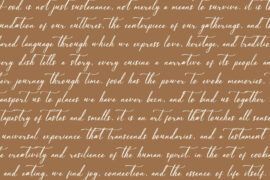 Food is not just sustenance, not merely a means to survive. it is the
undation of our cultures, the centerpiece of our gatherings, and t
ared language through which we express love, heritage, and traditio
very dish tells a story, every cuisine a narrative of its people an
our journey through time. food has the power to evoke memories,
ansport us to places we have never been, and to bind us together
tapestry of tastes and smells. it is an art form that touches all sense
universal experience that transcends boundaries, and a testament
e creativity and resilience of the human spirit. in the act of cooki
and eating, we find joy, connection, and the essence of life itself.